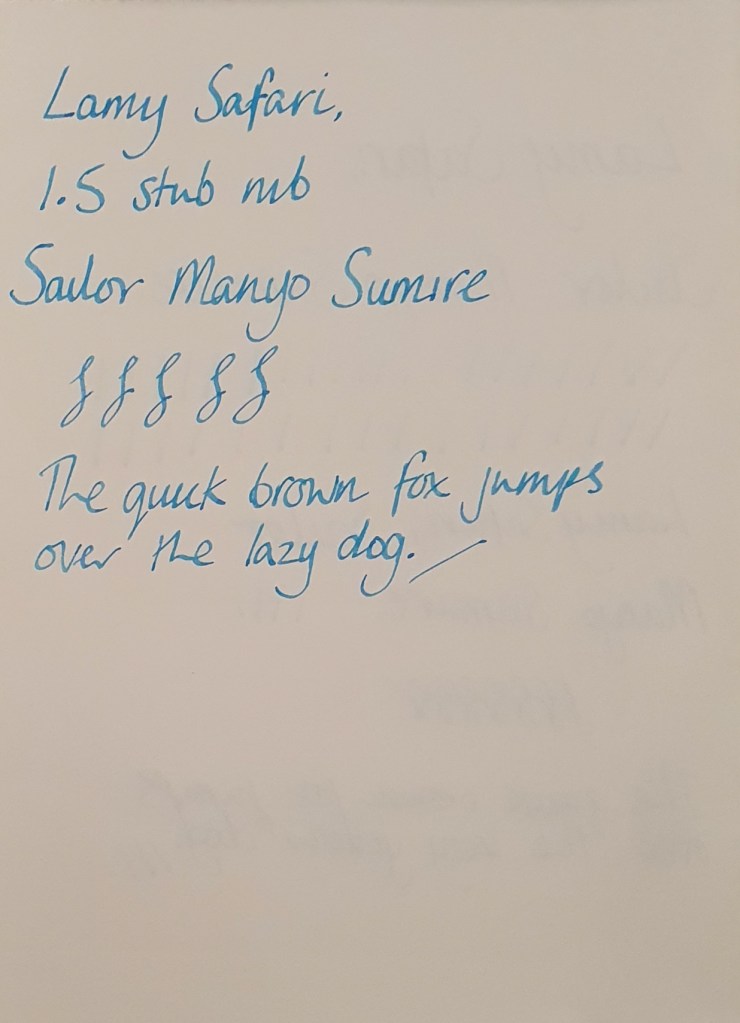 Lamy Safari,
1.5 stub nib
Sailor Manyo Sumire
f f f f f
The quick brown fox jumps
over the lazy dog.